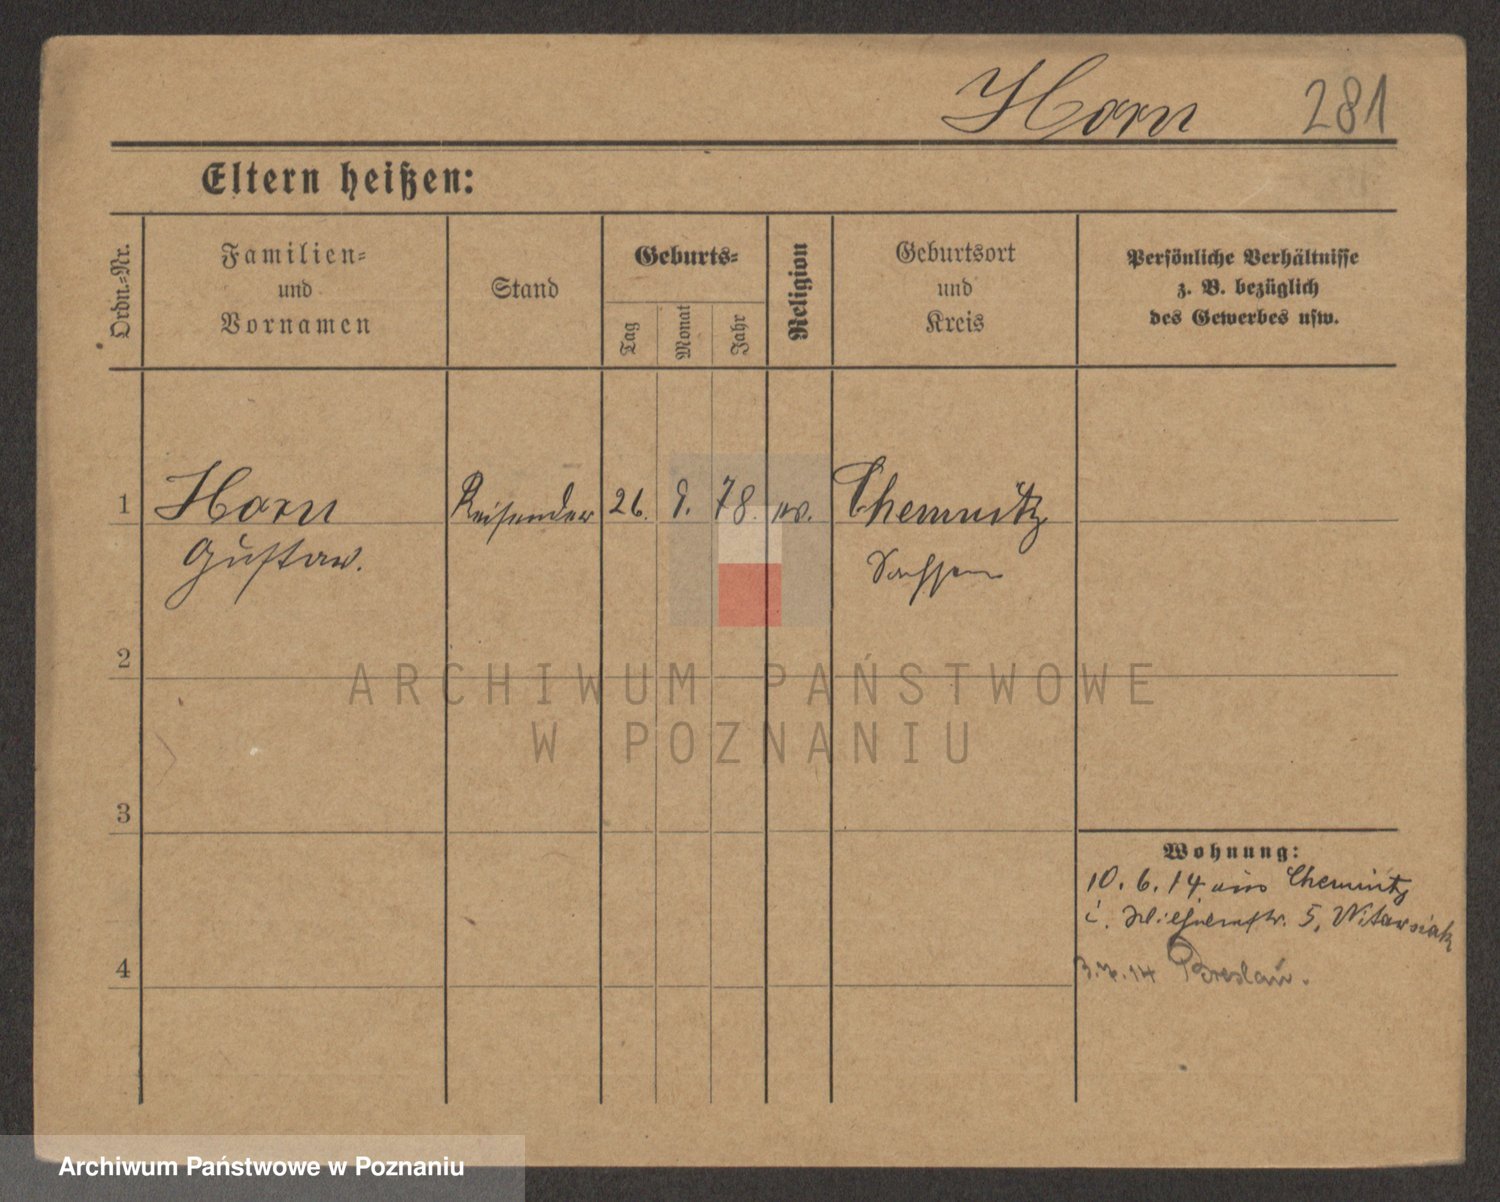 Horn 281
Eltern heißen:
Ordn.-Nr.
Familien-
und
Vornamen
Stand
Geburts-
Tag
Monat
Jahr
Religion
Geburtsort
und
Kreis
Persönliche Verhältnisse
z. B. bezüglich
des Gewerbes usw.
1 Horn Reisender 26. 78. ev. Chemnitz
Gustav. Sachsen
2
ARCHIWUM PAŃSTWOWE
W POZNANIU
3
Wohnung:
10. 6. 14 aus Chemnitz
i. Wilhelmstr. 5, Witawsiak
4
3.7.14 Breslau.
Archiwum Państwowe w Poznaniu